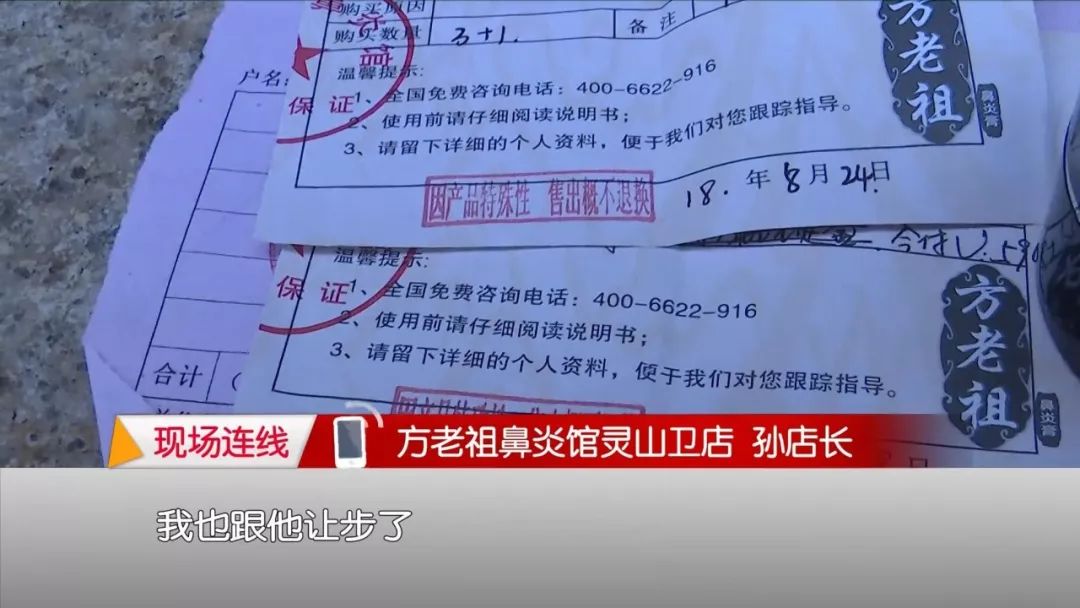 购买原因
购买数量 3+1. 备注
户名:
温馨提示:
保证
1、全国免费咨询电话：400-6622-916
2、使用前请仔细阅读说明书；
3、请留下详细的个人资料，便于我们对您跟踪指导。
因产品特殊性 售出概不退换
18. 年 8 月 24 日
方老祖
鼻炎膏
合付
温馨提示:
保证
1、全国免费咨询电话：400-6622-916
2、使用前请仔细阅读说明书；
3、请留下详细的个人资料，便于我们对您跟踪指导。
方老祖
鼻炎膏
合计
现场连线
方老祖鼻炎馆灵山卫店 孙店长
我也跟他让步了